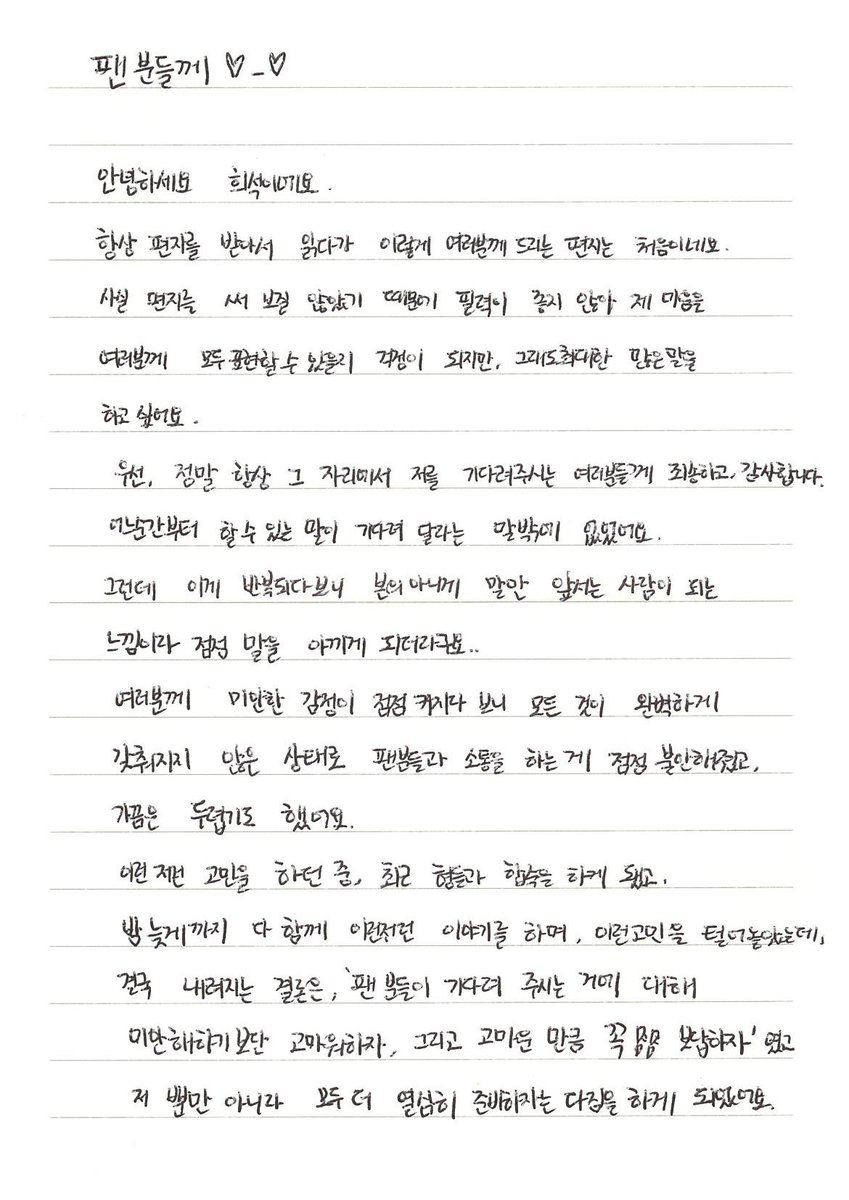 팬 분들께 ♡_♡
안녕하세요 희석이에요.
항상 편지를 받아서 읽다가 이렇게 여러분께 드리는 편지는 처음이네요.
사실 편지를 써 보질 않았기 때문에 필력이 좋지 않아 제 마음을
여러분께 모두 표현할 수 있을지 걱정이 되지만, 그래도 최대한 많은 말을
하고 싶어요.
우선, 정말 항상 그 자리에서 저를 기다려주시는 여러분들께 죄송하고, 감사합니다.
어느순간부터 할 수 있는 말이 기다려 달라는 말밖에 없었어요.
그런데 이게 반복되다보니 본의 아니게 말만 앞서는 사람이 되는
느낌이라 점점 말을 아끼게 되더라구요..
여러분께 미안한 감정이 점점 커지다 보니 모든 것이 완벽하게
갖춰지지 않은 상태로 팬분들과 소통을 하는게 점점 불안해졌고,
가끔은 두렵기도 했어요.
이런저런 고민을 하던 중, 최근 형들과 합숙을 하게 됐고,
밤 늦게까지 다 함께 이런저런 이야기를 하며, 이런고민을 털어놓았는데,
결국 내려지는 결론은, '팬 분들이 기다려 주시는 거에 대해
미안해하기 보단 고마워하자, 그리고 고마운 만큼 꼭 보답하자' 였고
저 뿐만 아니라 모두 더 열심히 준비하자는 다짐을 하게 되었어요.